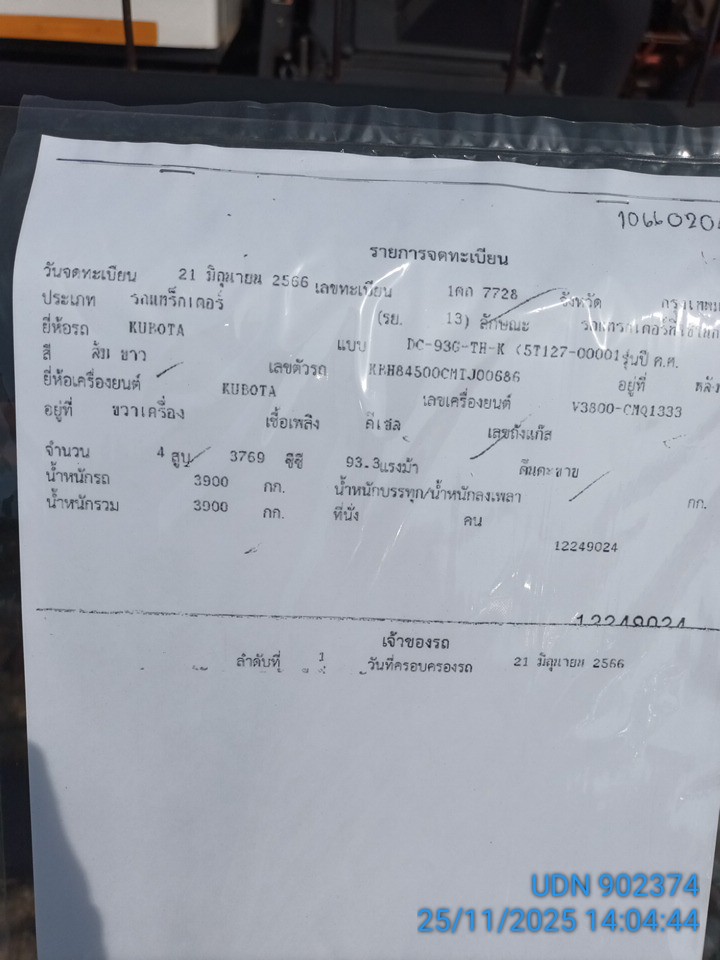 1066020
รายการจดทะเบียน
วันจดทะเบียน 21 มิถุนายน 2566 เลขทะเบียน 1ตถ 7728 จังหวัด
ประเภท รถแทร็กเตอร์ (รย. 13) ลักษณะ
ยี่ห้อรถ KUBOTA แบบ DC-93G-TH-K (5T127-00001 รุ่นปี ค.ศ.
สี ส้ม ขาว เลขตัวรถ KBH84500CMTJ00686 อยู่ที่
ยี่ห้อเครื่องยนต์ KUBOTA เลขเครื่องยนต์ V3800-CMQ1333
อยู่ที่ ขวาเครื่อง เชื้อเพลิง ดีเซล เลขถังแก๊ส
จำนวน 4 สูบ 3769 ซีซี 93.3 แรงม้า ตีนตะขาบ
น้ำหนักรถ 3900 กก. น้ำหนักบรรทุก/น้ำหนักลงเพลา กก.
น้ำหนักรวม 3900 กก. ที่นั่ง คน
12249024
12249024
เจ้าของรถ
ลำดับที่ 1 วันที่ครอบครองรถ 21 มิถุนายน 2566
UDN 902374
25/11/2025 14:04:44